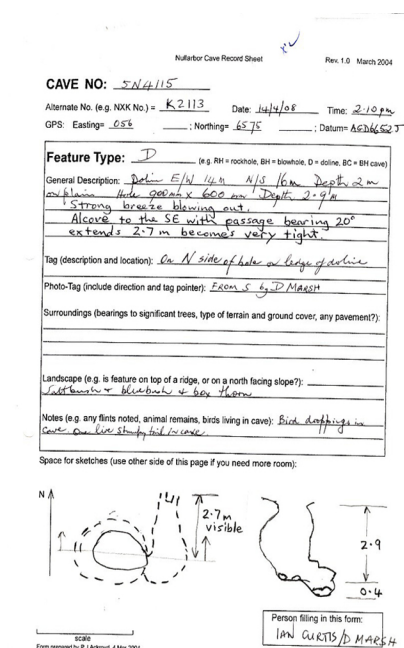 Nullarbor Cave Record Sheet
Rev. 1.0 March 2004
CAVE NO: 5N4115
Alternate No. (e.g. NXK No.) = K2113 Date: 14/4/08 Time: 2.10 pm
GPS: Easting= 056 ; Northing= 6575 ; Datum= AGD66 52J
Feature Type: D (e.g. RH = rockhole, BH = blowhole, D = doline, BC = BH cave)
General Description: Dolin E/W 14M N/S 16m Depth 2 m
on plain Hole 900mm x 600 mm Depth 2.9m
Strong breeze blowing out.
Alcove to the SE with passage bearing 20°
extends 2.7 m becomes very tight.
Tag (description and location): On N side of hole on ledge of doline
Photo-Tag (include direction and tag pointer): FROM S by D MARSH
Surroundings (bearings to significant trees, type of terrain and ground cover, any pavement?):
Landscape (e.g. is feature on top of a ridge, or on a north facing slope?):
Saltbush + bluebush + box thorn
Notes (e.g. any flints noted, animal remains, birds living in cave): Bird droppings in
cave one live stumpy tail in cave.
Space for sketches (use other side of this page if you need more room):
N
2.7m
visible
2.9
0.4
scale
Person filling in this form:
IAN CURTIS/D MARSH
Form prepared by P J Ackroyd, 4 Mar 2004